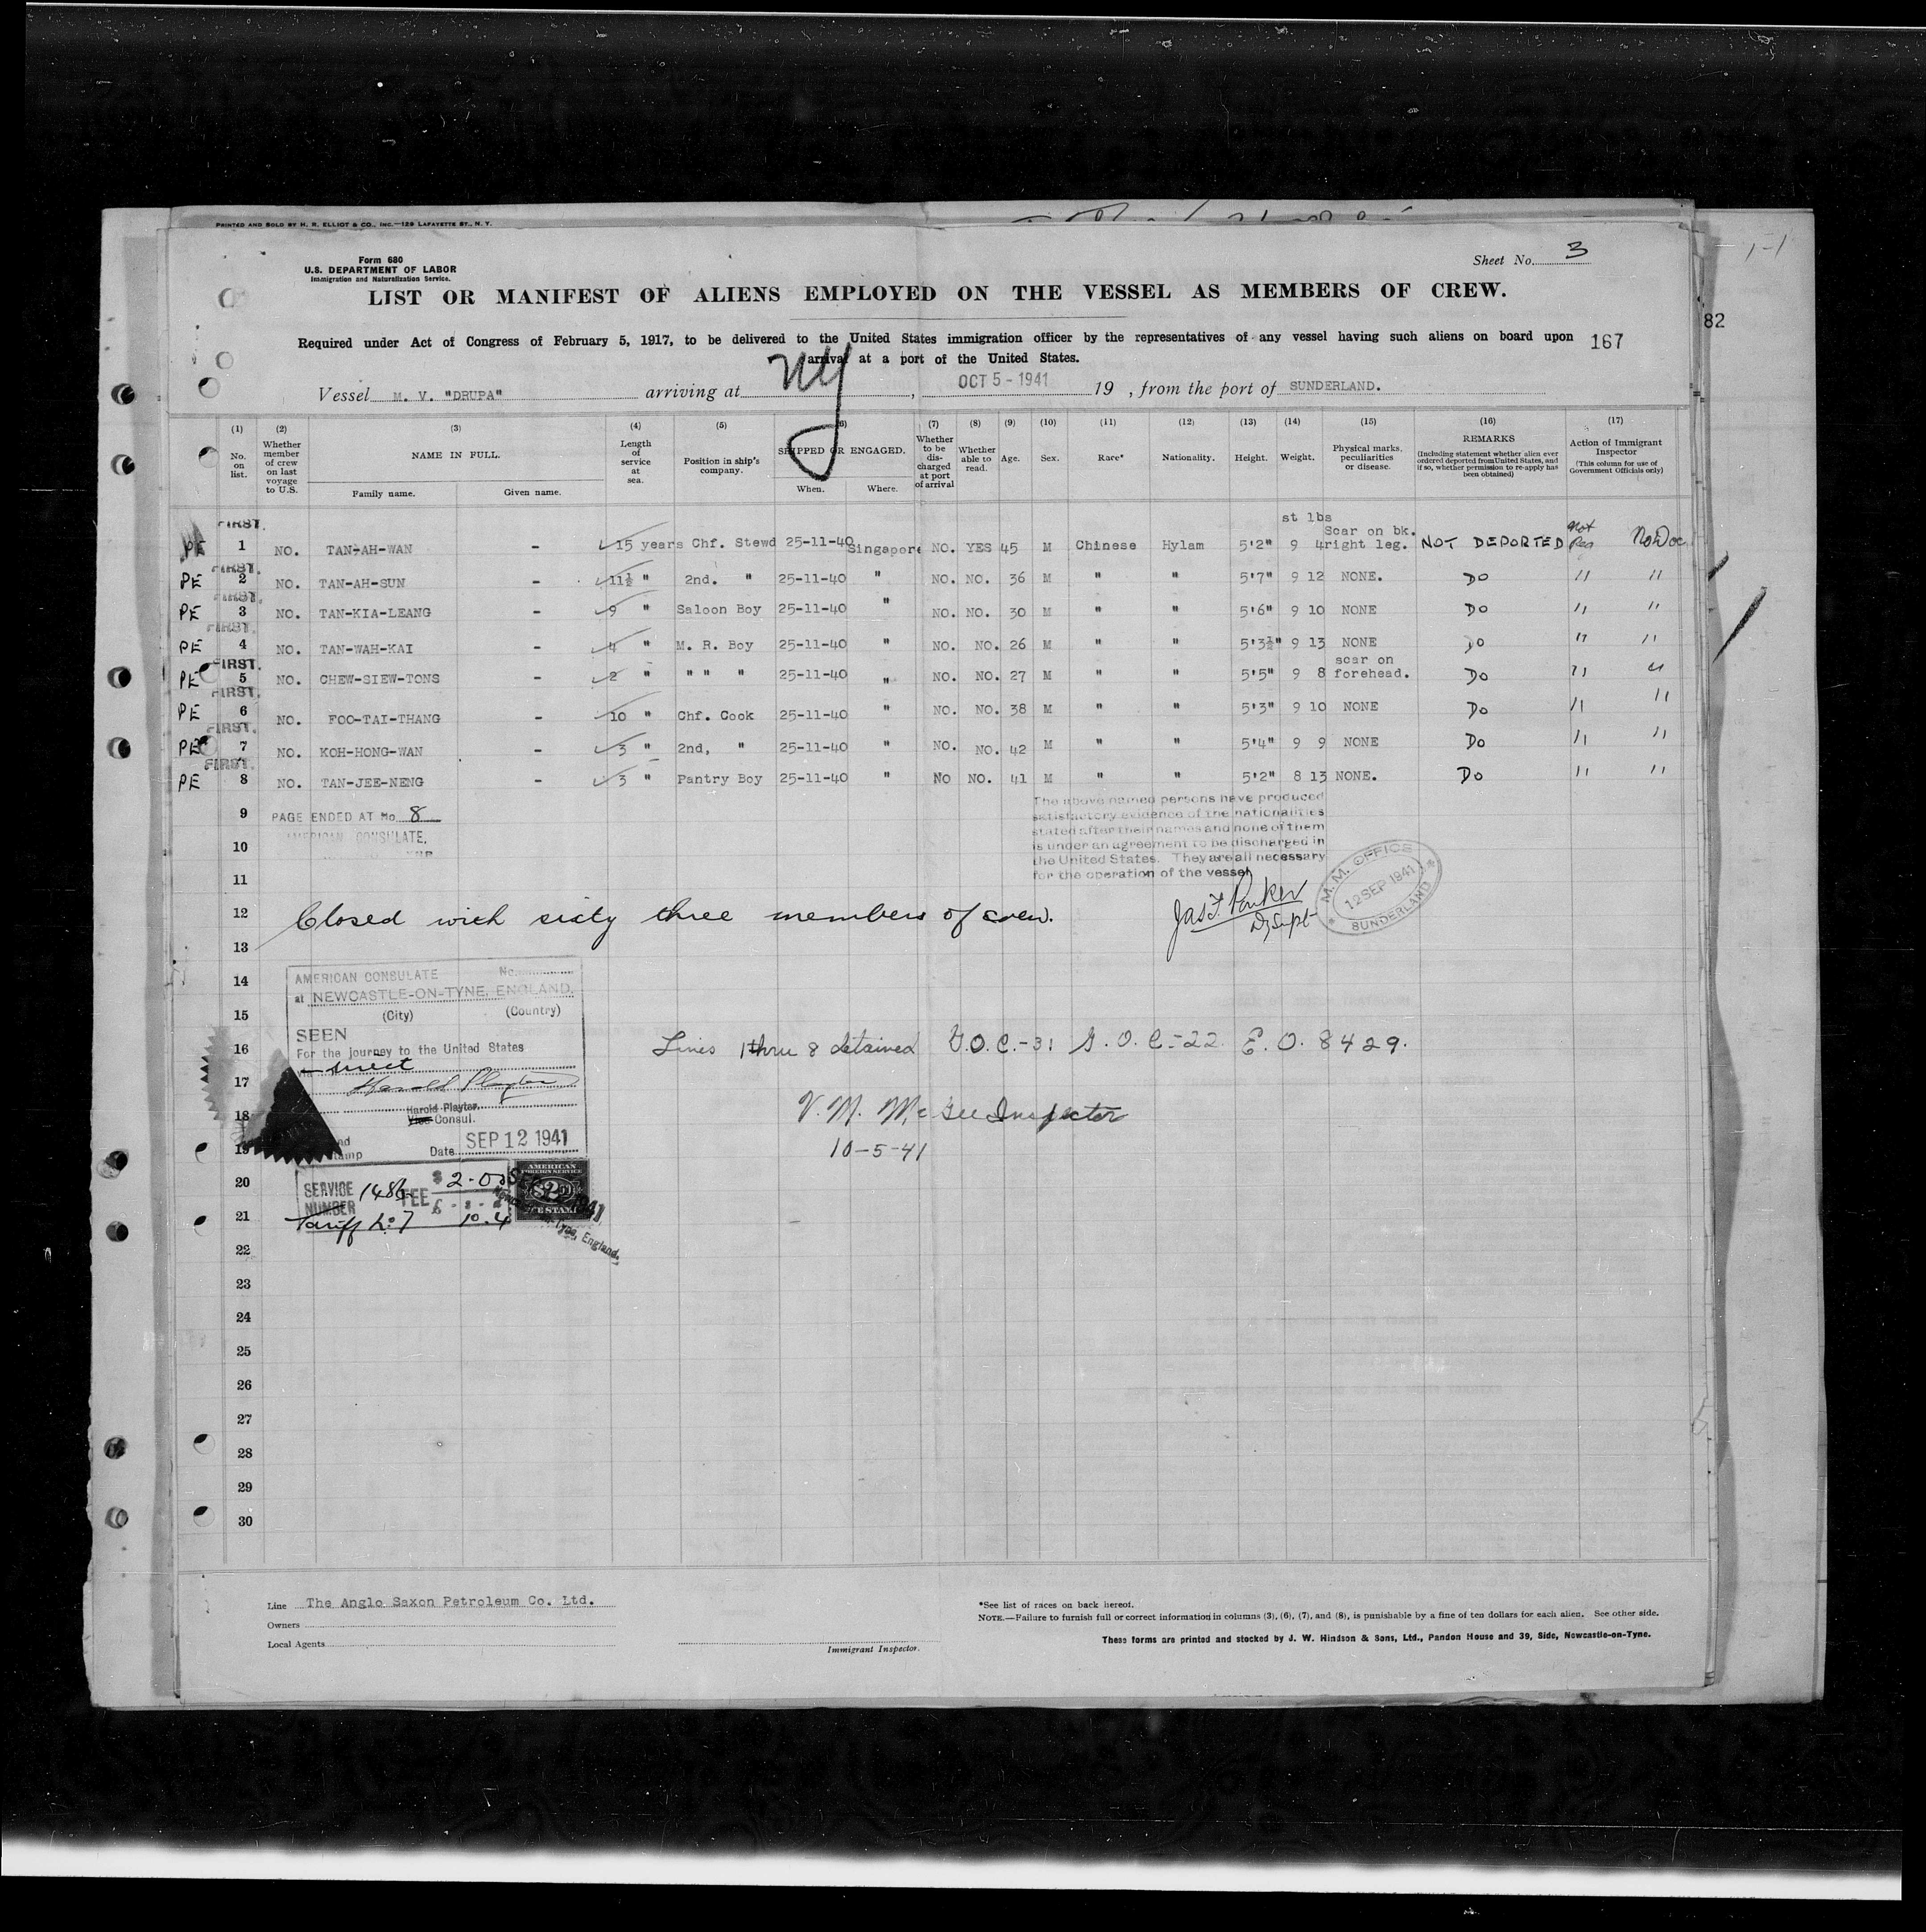 PRINTED AND SOLD BY H. R. ELLIOT & CO., INC.—129 LAFAYETTE ST., N. Y.
Form 680
U.S. DEPARTMENT OF LABOR
Immigration and Naturalization Service.
Sheet No. 3
LIST OR MANIFEST OF ALIENS EMPLOYED ON THE VESSEL AS MEMBERS OF CREW.
82
Required under Act of Congress of February 5, 1917, to be delivered to the United States immigration officer by the representatives of any vessel having such aliens on board upon 167
arrival at a port of the United States.
Vessel M. V. "DRUPA" arriving at NY, OCT 5 - 1941 19 , from the port of SUNDERLAND.
(1) No. on list.
(2) Whether member of crew on last voyage to U.S.
(3) NAME IN FULL. Family name. Given name.
(4) Length of service at sea.
(5) Position in ship's company.
(6) SHIPPED OR ENGAGED. When. Where.
(7) Whether to be discharged at port of arrival
(8) Whether able to read.
(9) Age.
(10) Sex.
(11) Race*
(12) Nationality.
(13) Height.
(14) Weight.
(15) Physical marks, peculiarities or disease.
(16) REMARKS (Including statement whether alien ever ordered deported from United States, and if so, whether permission to re-apply has been obtained)
(17) Action of Immigrant Inspector (This column for use of Government Officials only)
st lbs
FIRST.
PE 1 NO. TAN-AH-WAN - 15 years Chf. Stewd 25-11-40 Singapore NO. YES 45 M Chinese Hylam 5'2" 9 4 Scar on bk. right leg. NOT DEPORTED Not Res No Doc
FIRST.
PE 2 NO. TAN-AH-SUN - 11½ " 2nd. " 25-11-40 " NO. NO. 36 M " " 5'7" 9 12 NONE. Do " "
FIRST.
PE 3 NO. TAN-KIA-LEANG - 9 " Saloon Boy 25-11-40 " NO. NO. 30 M " " 5'6" 9 10 NONE Do " "
FIRST.
PE 4 NO. TAN-WAH-KAI - 4 " M. R. Boy 25-11-40 " NO. NO. 26 M " " 5'3½" 9 13 NONE Do " "
FIRST.
PE 5 NO. CHEW-SIEW-TONS - 2 " " " " 25-11-40 " NO. NO. 27 M " " 5'5" 9 8 scar on forehead. Do " "
FIRST.
PE 6 NO. FOO-TAI-THANG - 10 " Chf. Cook 25-11-40 " NO. NO. 38 M " " 5'3" 9 10 NONE Do " "
FIRST.
PE 7 NO. KOH-HONG-WAN - 3 " 2nd, " 25-11-40 " NO. NO. 42 M " " 5'4" 9 9 NONE Do " "
FIRST.
PE 8 NO. TAN-JEE-NENG - 3 " Pantry Boy 25-11-40 " NO NO. 41 M " " 5'2" 8 13 NONE. Do " "
9 PAGE ENDED AT No 8
AMERICAN CONSULATE,
10
11
The above named persons have produced
satisfactory evidence of the nationalities
stated after their names and none of them
is under an agreement to be discharged in
the United States. They are all necessary
for the operation of the vessel
Jas F. Parker
D/Supt
M. M. OFFICE
12 SEP 1941
SUNDERLAND
12 Closed with sixty three members of crew.
13
14
15
16
17
18
19
20
21
22
23
24
25
26
27
28
29
30
AMERICAN CONSULATE No.
at NEWCASTLE-ON-TYNE, ENGLAND.
(City) (Country)
SEEN
For the journey to the United States
direct
Harold Playter
Harold Playter
Vice Consul.
Date SEP 12 1941
SERVICE NUMBER 1486 FEE $2.00
Tariff No 7 10.4
AMERICAN
FOREIGN SERVICE
FEE STAMP
Newcastle-on-Tyne, England.
Lines 1 thru 8 detained G.O.C.-31 G.O.C.-22 E.O. 8429.
V. M. McGee Inspector
10-5-41
Line The Anglo Saxon Petroleum Co. Ltd.
Owners
Local Agents
Immigrant Inspector.
*See list of races on back hereof.
NOTE.—Failure to furnish full or correct information in columns (3), (6), (7), and (8), is punishable by a fine of ten dollars for each alien. See other side.
These forms are printed and stocked by J. W. Hindson & Sons, Ltd., Pandon House and 39, Side, Newcastle-on-Tyne.